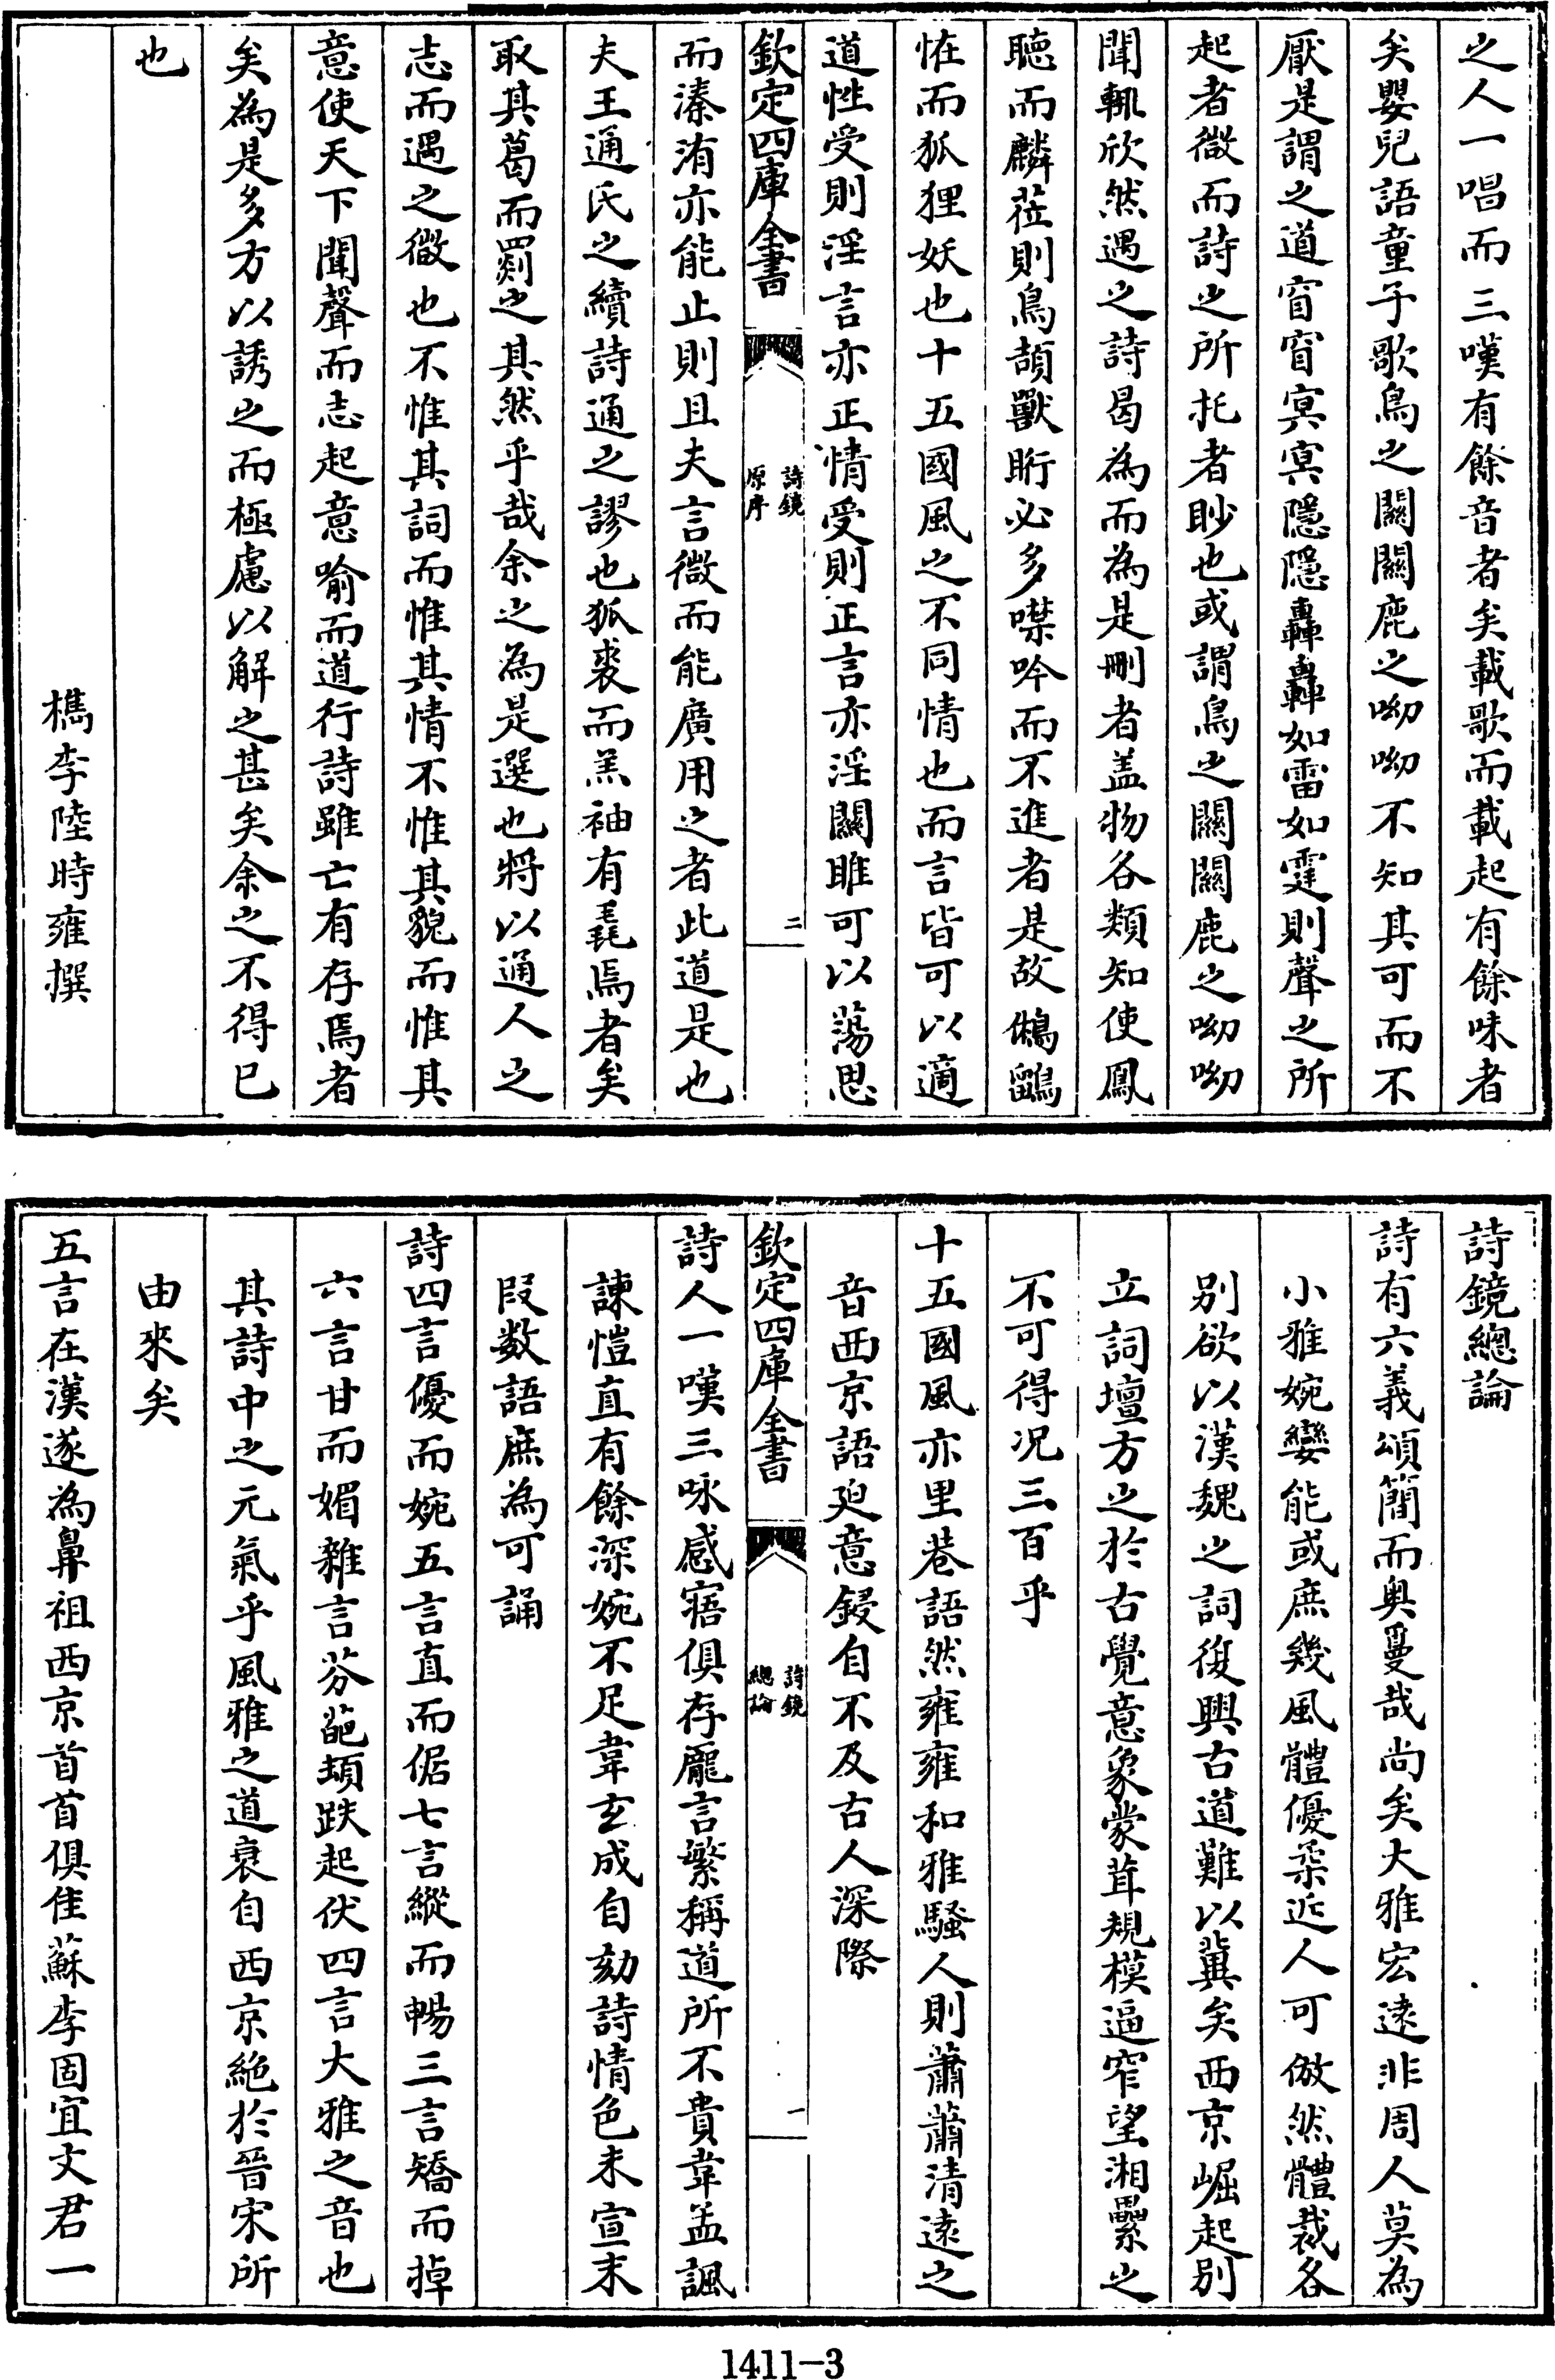 之人一唱而三嘆有餘音者矣載歌而載起有餘味者
矣嬰兒語童子歌鳥之關關鹿之呦呦不知其可而不
厭是謂之道窅窅冥冥隱隱轟轟如雷如霆則聲之所
起者微而詩之所托者眇也或謂鳥之關關鹿之呦呦
聞輒欣然遇之詩曷為而為是刪者盖物各類知使鳳
聽而麟蒞則鳥頡獸䀪必多噤吟而不進者是故鵂鶹
恠而狐狸妖也十五國風之不同情也而言皆可以適
道性受則淫言亦正情受則正言亦淫關雎可以蕩思
欽定四庫全書
詩鏡
原序
二
而溱洧亦能止則且夫言微而能廣用之者此道是也
夫王通氏之續詩通之謬也狐裘而羔袖有毳焉者矣
取其葛而罽之其然乎哉余之為是選也將以通人之
志而遇之微也不惟其詞而惟其情不惟其貌而惟其
意使天下聞聲而志起意喻而道行詩雖亡有存焉者
矣為是多方以誘之而極慮以解之甚矣余之不得已
也
檇李陸時雍撰
詩鏡總論
詩有六義頌簡而奧夐哉尚矣大雅宏遠非周人莫為
小雅婉孌能或庶幾風體優柔近人可倣然體裁各
别欲以漢魏之詞復興古道難以冀矣西京崛起别
立詞壇方之於古覺意象蒙茸規模逼窄望湘纍之
不可得况三百乎
十五國風亦里巷語然雍雍和雅騷人則蕭蕭清遠之
音西京語迫意鋟自不及古人深際
欽定四庫全書
詩鏡
總論
一
詩人一嘆三咏感寤俱存龎言繁稱道所不貴韋孟諷
諫愷直有餘深婉不足韋玄成自劾詩情色未宣末
段数語庶為可誦
詩四言優而婉五言直而倨七言縱而暢三言矯而掉
六言甘而媚雜言芬葩頓跌起伏四言大雅之音也
其詩中之元氣乎風雅之道衰自西京絶於晉宋所
由來矣
五言在漢遂為鼻祖西京首首俱佳蘇李固宜文君一
1411-3